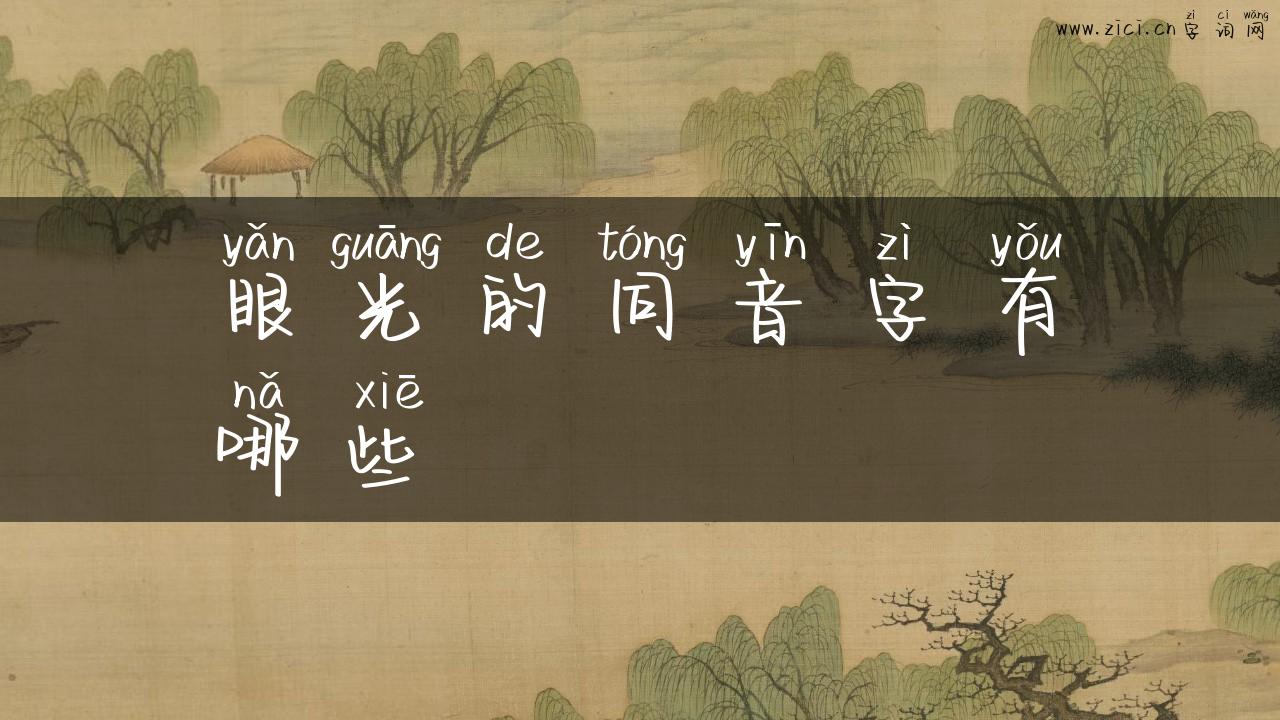 zì cí wǎng
www.zici.cn 字 词 网
yǎn guāng de tóng yīn zì yǒu
眼 光 的 同 音 字 有
nǎ xiē
哪 些